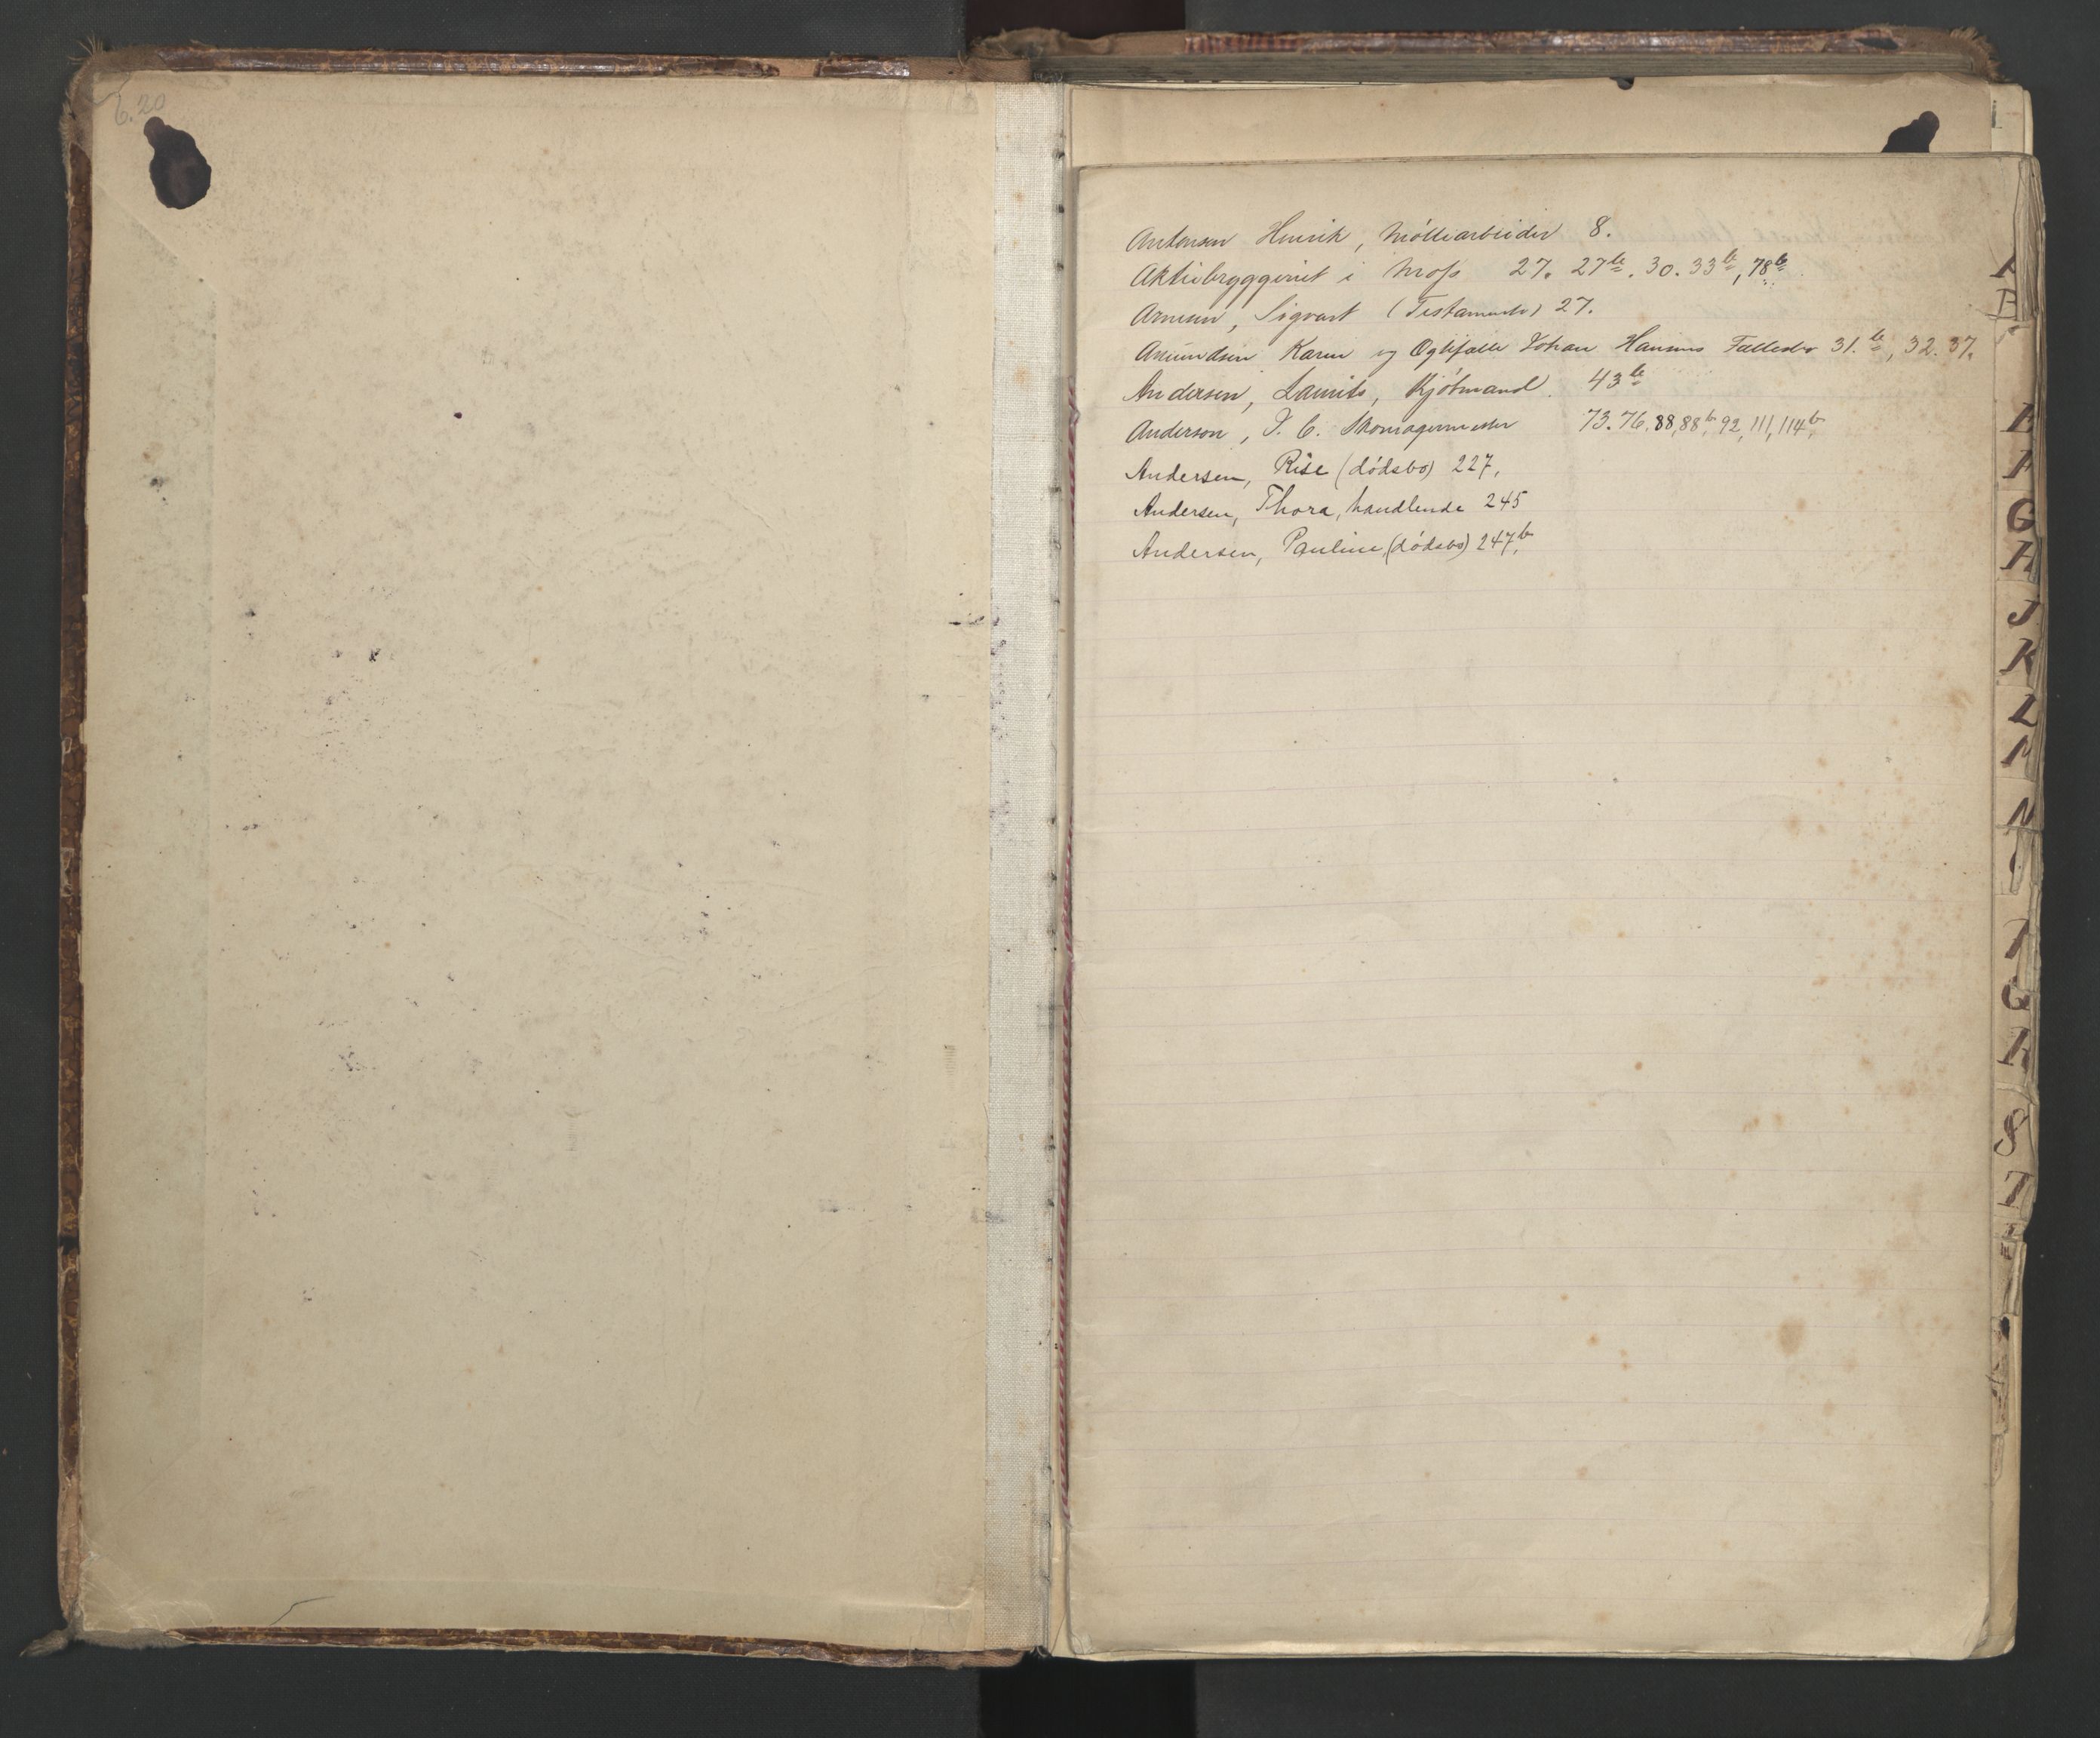 6.20
Antonsen Henrik, Mølliarbeider 8.
Aktiebryggeriet i Moss 27. 27b. 30. 33b, 78b
Arnesen, Sigvart (Testamente) 27.
Amundsen Karen og Ægtefælle Johan Hansens Fællesbo 31.b, 32. 37.
Andersen, Laurits, Kjøbmand. 43b
Anderson, J. C. Skomagermester 73. 76. 88, 88b, 92, 111, 114b
Andersen, Rise (dødsbo) 227.
Andersen, Thora, handlende 245
Andersen, Pauline, (dødsbo) 247b
B
G
H
J
K
L
N
S
T